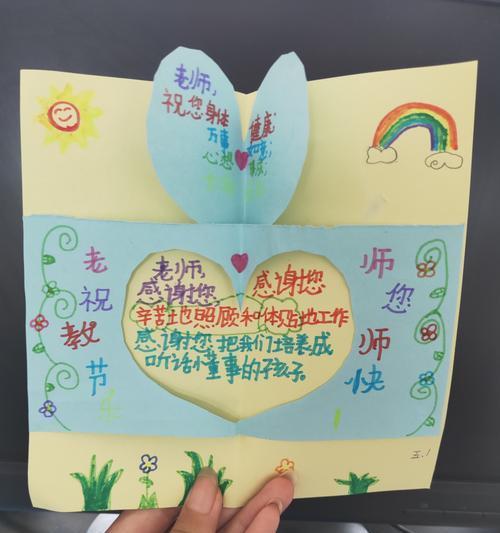 老师,
祝您身体健康,
万事如意,
心想事成,
老师
祝您
教师
节快
乐!
老师,
感谢您 感谢您
辛苦地照顾和体贴地工作
感谢您把我们培养成
听话懂事的孩子.
五.1